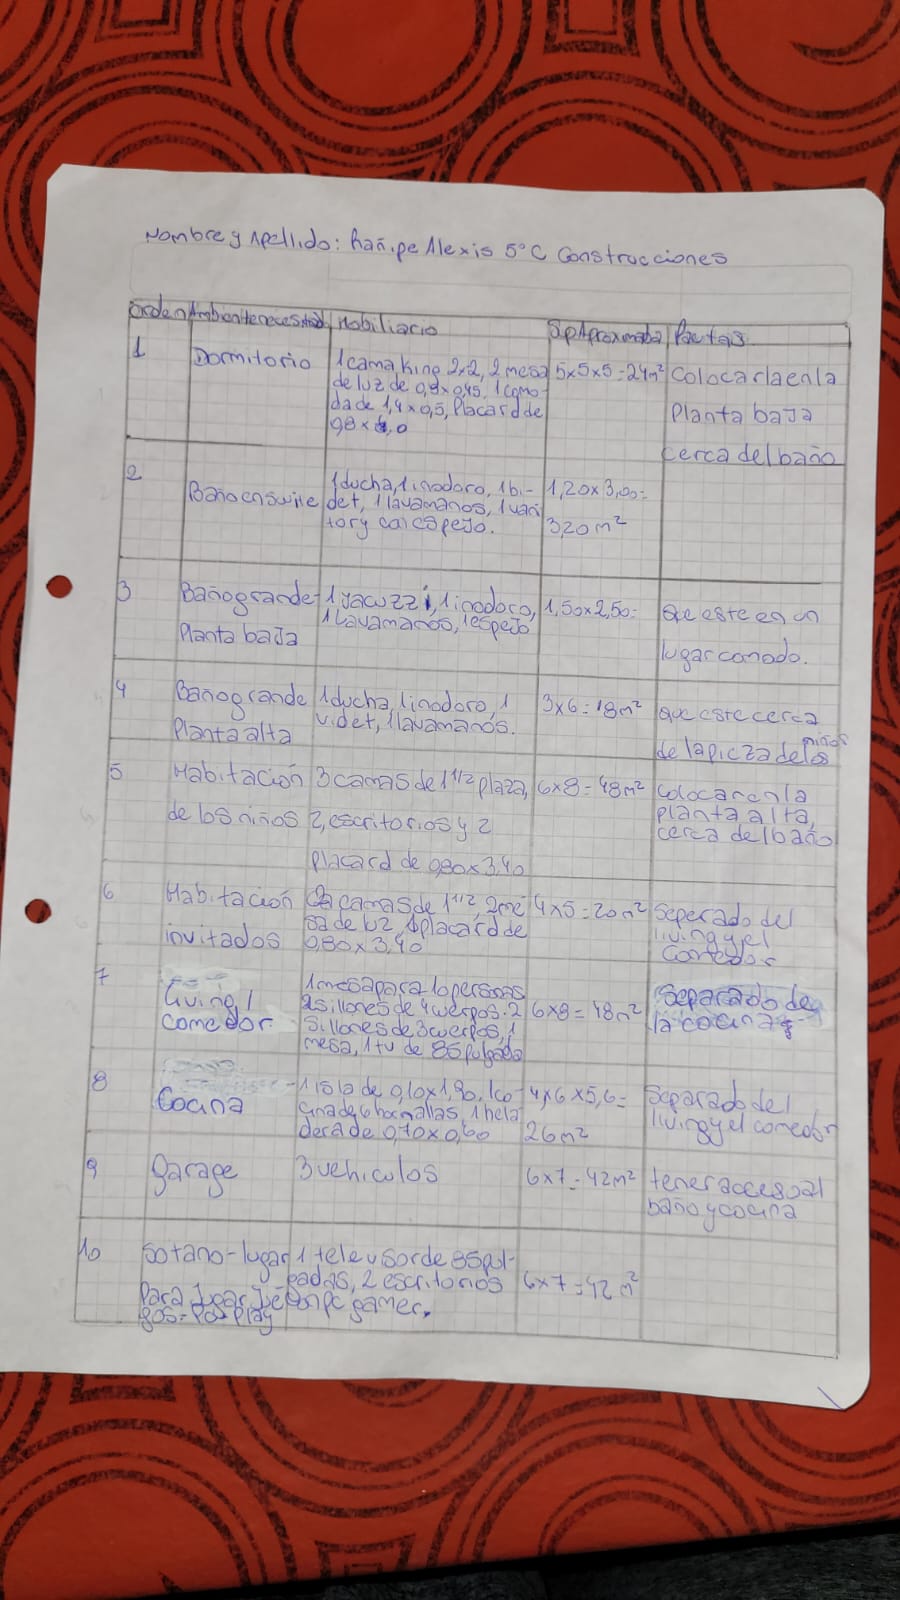 Nombre y Apellido: Rañipe Alexis 5°C Construcciones
Orden Ambiente necesidad Mobiliario Sp Aproximada Pautas
1 Dormitorio 1 cama King 2x2, 2 mesa 5x5x5=24m² Colocarla en la
de luz de 0,9x0,45, 1 como-
da de 1,4x0,5, Placard de Planta baja
cerca del baño
2 Baño en suite 1 ducha, 1 inodoro, 1 bi- 1,20x3,00=
det, 1 lavamanos, 1 vani
tory con espejo. 3,20m²
3 Baño grande- 1 yacuzzi, 1 inodoro, 1,50x2,50= Que este en un
Planta baja 1 Lavamanos, 1 espejo
lugar comodo.
4 Baño grande 1 ducha, 1 inodoro, 1 3x6=18m² Que este cerca
Planta alta videt, 1 lavamanos. de la pieza de los niños
5 Habitación 3 camas de 1 1/2 plaza, 6x8=48m² Colocar en la
de los niños 2, escritorios y 2 planta alta,
cerca del baño
placard de 0,80x3,40
6 Habitación camas de 1 1/2, 2 me 4x5=20m² Seperado del
invitados sa de luz, 1 placard de living y el
0,80x3,40 comedor
7 Living/ 1 mesa para 10 personas Separado de
comedor 2 sillones de 4 cuerpos. 2 6x8=48m² la cocina
sillones de 3 cuerpos, 1
mesa, 1 tv de 85 pulgada
8 Cocina 1 isla de 0,10x1,90, 1 co- 4x6x5,6= Separado del
cina de 6 hornallas, 1 hela living y el comedor
dera de 0,70x0,60 26m²
9 Garage 3 vehiculos 6x7=42m² tener acceso al
baño y cocina
10 Sotano-lugar 1 televisor de 85 pul-
gadas, 2 escritorios 6x7=42m²
Para Jugar Jue con pc gamer.
gos=